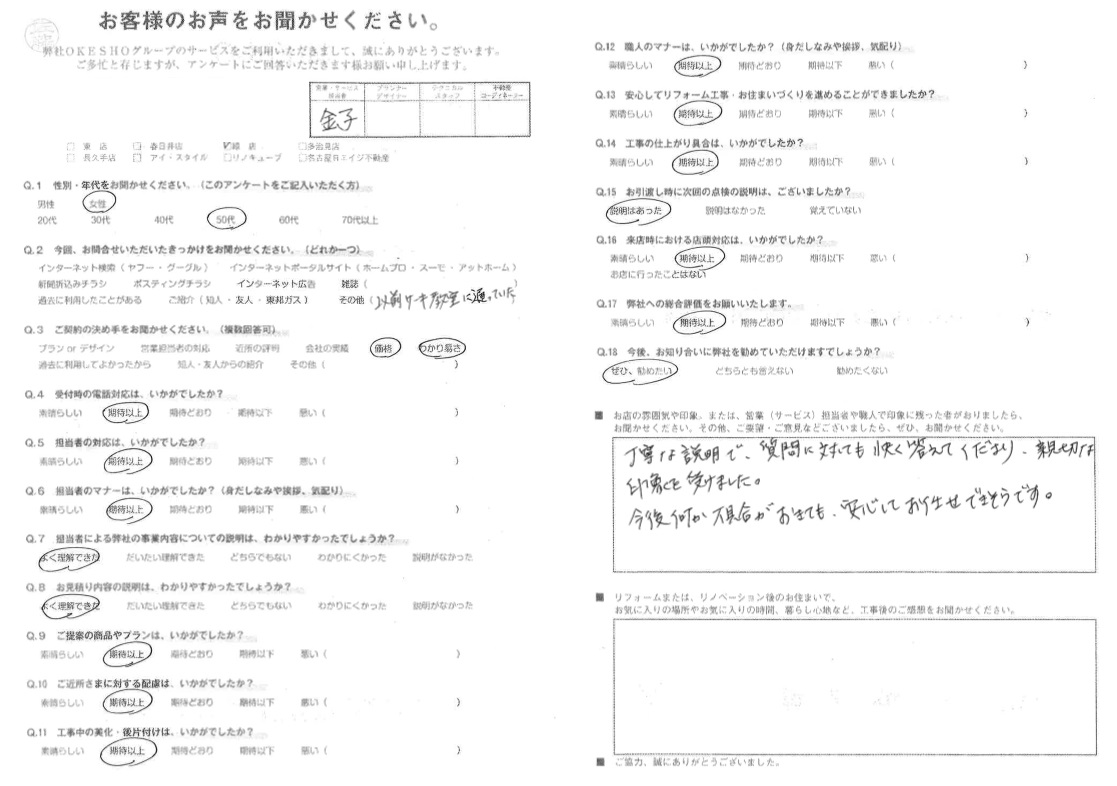 お客様のお声をお聞かせください。
弊社OKESHOグループのサービスをご利用いただきまして、誠にありがとうございます。
ご多忙と存じますが、アンケートにご回答いただきます様お願い申し上げます。
営業・サービス 担当者 プランナー デザイナー テクニカル スタッフ 不動産 コーディネーター
金子
東店 春日井店 緑店 多治見店
長久手店 アイ・スタイル リノキューブ 名古屋日エイジ不動産
Q.1 性別・年代をお聞かせください。(このアンケートをご記入いただく方)
男性 女性
20代 30代 40代 50代 60代 70代以上
Q.2 今回、お問合せいただいたきっかけをお聞かせください。(どれか一つ)
インターネット検索(ヤフー・グーグル) インターネットポータルサイト(ホームプロ・スーモ・アットホーム)
新聞折込みチラシ ポスティングチラシ インターネット広告 雑誌(
過去に利用したことがある ご紹介(知人・友人・東邦ガス) その他(以前ケーキ教室に通っていた)
Q.3 ご契約の決め手をお聞かせください。(複数回答可)
プラン or デザイン 営業担当者の対応 近所の評判 会社の実績 価格 わかり易さ
過去に利用してよかったから 知人・友人からの紹介 その他( )
Q.4 受付時の電話対応は、いかがでしたか?
素晴らしい 期待以上 期待どおり 期待以下 悪い( )
Q.5 担当者の対応は、いかがでしたか?
素晴らしい 期待以上 期待どおり 期待以下 悪い( )
Q.6 担当者のマナーは、いかがでしたか?(身だしなみや挨拶、気配り)
素晴らしい 期待以上 期待どおり 期待以下 悪い( )
Q.7 担当者による弊社の事業内容についての説明は、わかりやすかったでしょうか?
よく理解できた だいたい理解できた どちらでもない わかりにくかった 説明がなかった
Q.8 お見積り内容の説明は、わかりやすかったでしょうか?
よく理解できた だいたい理解できた どちらでもない わかりにくかった 説明がなかった
Q.9 ご提案の商品やプランは、いかがでしたか?
素晴らしい 期待以上 期待どおり 期待以下 悪い( )
Q.10 ご近所さまに対する配慮は、いかがでしたか?
素晴らしい 期待以上 期待どおり 期待以下 悪い( )
Q.11 工事中の美化・後片付けは、いかがでしたか?
素晴らしい 期待以上 期待どおり 期待以下 悪い( )
Q.12 職人のマナーは、いかがでしたか?(身だしなみや挨拶、気配り)
素晴らしい 期待以上 期待どおり 期待以下 悪い( )
Q.13 安心してリフォーム工事・お住まいづくりを進めることができましたか?
素晴らしい 期待以上 期待どおり 期待以下 悪い( )
Q.14 工事の仕上がり具合は、いかがでしたか?
素晴らしい 期待以上 期待どおり 期待以下 悪い( )
Q.15 お引渡し時に次回の点検の説明は、ございましたか?
説明はあった 説明はなかった 覚えていない
Q.16 来店時における店頭対応は、いかがでしたか?
素晴らしい 期待以上 期待どおり 期待以下 悪い( )
お店に行ったことはない
Q.17 弊社への総合評価をお願いいたします。
素晴らしい 期待以上 期待どおり 期待以下 悪い( )
Q.18 今後、お知り合いに弊社を勧めていただけますでしょうか?
ぜひ、勧めたい どちらとも言えない 勧めたくない
■ お店の雰囲気や印象、または、営業(サービス)担当者や職人で印象に残った者がおりましたら、
お聞かせください。その他、ご要望・ご意見などございましたら、ぜひ、お聞かせください。
丁寧な説明で、質問に対しても快く答えてくださり、親切な
印象を受けました。
今後何か不具合がおきても、安心してお任せできそうです。
■ リフォームまたは、リノベーション後のお住まいで、
お気に入りの場所やお気に入りの時間、暮らし心地など、工事後のご感想をお聞かせください。
■ ご協力、誠にありがとうございました。